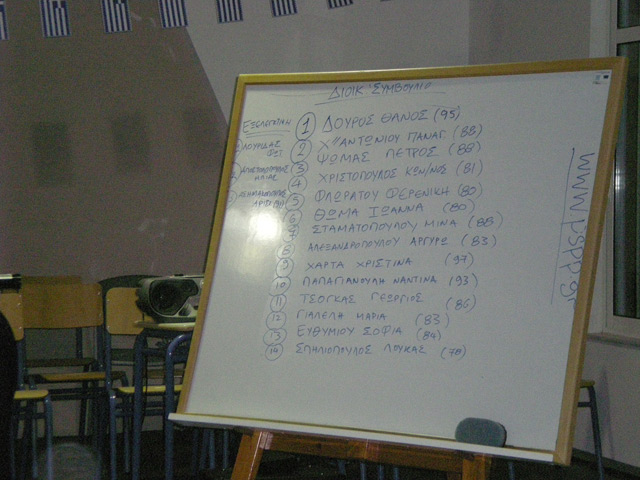 ΔΙΟΙΚ ΣΥΜΒΟΥΛΙΟ
ΕΞΕΛΕΓΚΤΙΚΗ
1 ΔΟΥΡΟΣ ΘΑΝΟΣ (95)
2 Χ"ΑΝΤΩΝΙΟΥ ΠΑΝΑΓ. (88)
3 ΨΩΜΑΣ ΠΕΤΡΟΣ (88)
4 ΧΡΙΣΤΟΠΟΥΛΟΣ ΚΩΝ/ΝΟΣ (81)
5 ΦΛΩΡΑΤΟΥ ΦΕΡΕΝΙΚΗ (80)
6 ΘΩΜΑ ΙΩΑΝΝΑ (80)
7 ΣΤΑΜΑΤΟΠΟΥΛΟΥ ΜΙΝΑ (88)
8 ΑΛΕΞΑΝΔΡΟΠΟΥΛΟΥ ΑΡΓΥΡΩ (83)
9 ΧΑΡΤΑ ΧΡΙΣΤΙΝΑ (97)
10 ΠΑΠΑΓΙΑΝΟΥΛΗ ΝΑΝΤΙΝΑ (93)
11 ΤΣΟΓΚΑΣ ΓΕΩΡΓΙΟΣ (86)
12 ΓΙΑΛΕΛΗ ΜΑΡΙΑ (83)
13 ΕΥΘΥΜΙΟΥ ΣΟΦΙΑ (84)
14 ΣΠΗΛΙΟΠΟΥΛΟΣ ΛΟΥΚΑΣ (78)
www.pspp.gr